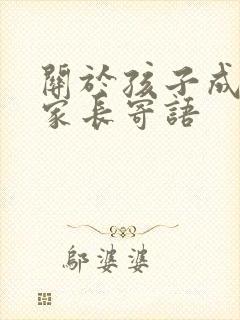 關於孩子成
家長寄語
鄔婆婆